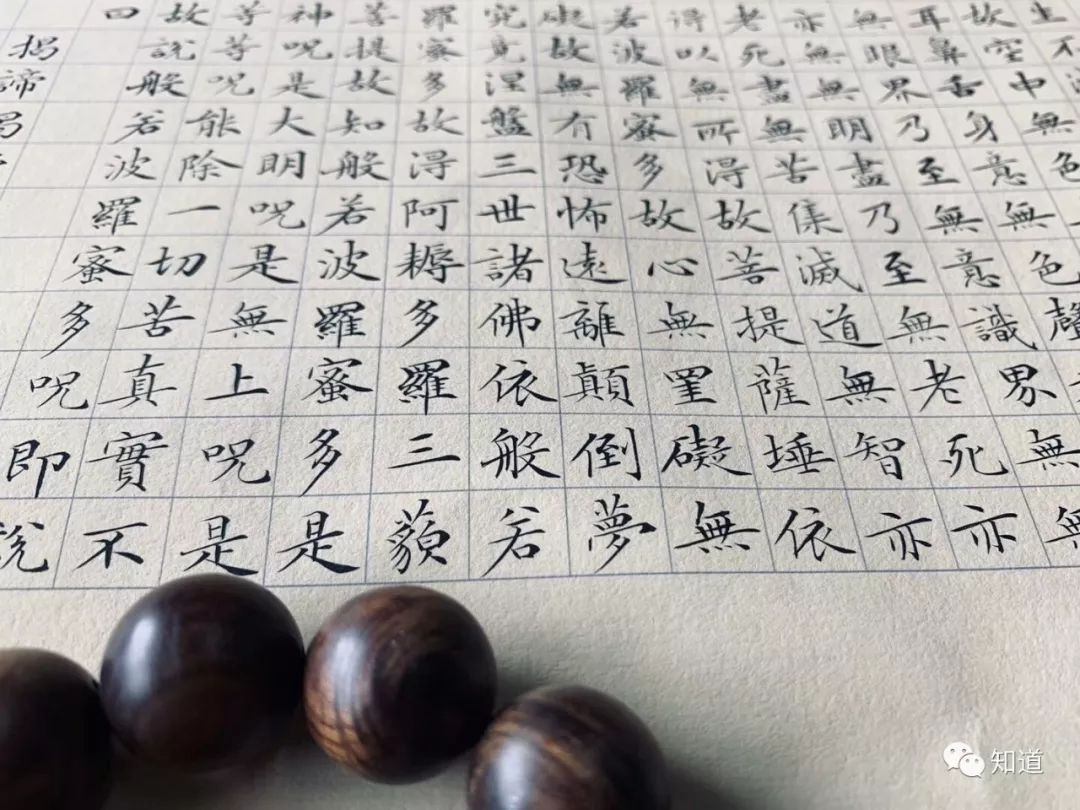 上不
故空中無色
耳鼻舌身意無色聲
無眼界乃至無意識界無無
亦無無明盡乃至無老死亦
老死盡無苦集滅道無智亦
得以無所得故菩提薩埵依
若波羅蜜多故心無罣礙無
礙故無有恐怖遠離顛倒夢
究竟涅盤三世諸佛依般若
羅蜜多故得阿耨多羅三藐
菩提故知般若波羅蜜多是
神咒是大明咒是無上咒是
等等咒能除一切苦真實不
故說般若波羅蜜多咒即說
曰
揭諦揭
知道